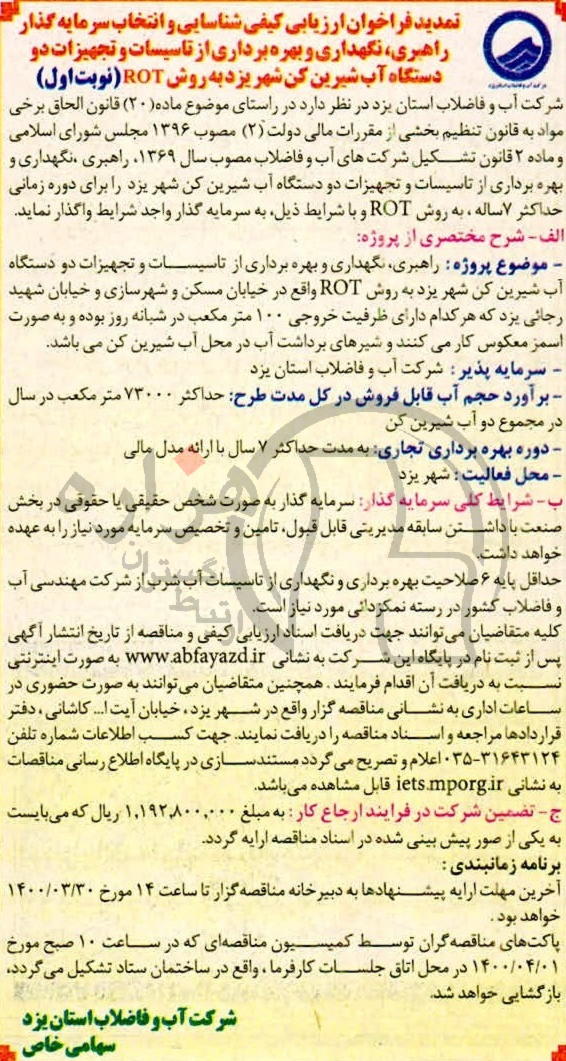 تمدید فراخوان ارزیابی کیفی شناسایی و انتخاب سرمایه گذار
راهبری، نگهداری و بهره برداری از تاسیسات و تجهیزات دو
دستگاه آب شیرین کن شهر یزد به روش ROT (نوبت اول)
شرکت آب و فاضلاب استان یزد
شرکت آب و فاضلاب استان یزد در نظر دارد در راستای موضوع ماده (۲۰) قانون الحاق برخی
مواد به قانون تنظیم بخشی از مقررات مالی دولت (۲) مصوب ۱۳۹۶ مجلس شورای اسلامی
و ماده ۲ قانون تشکیل شرکت های آب و فاضلاب مصوب سال ۱۳۶۹، راهبری ،نگهداری و
بهره برداری از تاسیسات و تجهیزات دو دستگاه آب شیرین کن شهر یزد را برای دوره زمانی
حداکثر ۷ساله ، به روش ROT و با شرایط ذیل، به سرمایه گذار واجد شرایط واگذار نماید.
الف- شرح مختصری از پروژه:
- موضوع پروژه: راهبری، نگهداری و بهره برداری از تاسیسات و تجهیزات دو دستگاه
آب شیرین کن شهر یزد به روش ROT واقع در خیابان مسکن و شهرسازی و خیابان شهید
رجائی یزد که هر کدام دارای ظرفیت خروجی ۱۰۰ متر مکعب در شبانه روز بوده و به صورت
اسمز معکوس کار می کنند و شیرهای برداشت آب در محل آب شیرین کن می باشد.
- سرمایه پذیر : شرکت آب و فاضلاب استان یزد
- برآورد حجم آب قابل فروش در کل مدت طرح: حداکثر ۷۳۰۰۰ متر مکعب در سال
در مجموع دو آب شیرین کن
- دوره بهره برداری تجاری: به مدت حداکثر ۷ سال با ارائه مدل مالی
- محل فعالیت : شهر یزد
ب- شرایط کلی سرمایه گذار: سرمایه گذار به صورت شخص حقیقی یا حقوقی در بخش
صنعت با داشتن سابقه مدیریتی قابل قبول، تامین و تخصیص سرمایه مورد نیاز را به عهده
خواهد داشت.
حداقل پایه ۶ صلاحیت بهره برداری و نگهداری از تاسیسات آب شرب از شرکت مهندسی آب
و فاضلاب کشور در رسته نمکزدائی مورد نیاز است.
کلیه متقاضیان می‌توانند جهت دریافت اسناد ارزیابی کیفی و مناقصه از تاریخ انتشار آگهی
پس از ثبت نام در پایگاه این شرکت به نشانی www.abfayazd.ir به صورت اینترنتی
نسبت به دریافت آن اقدام فرمایند . همچنین متقاضیان می‌توانند به صورت حضوری در
ساعات اداری به نشانی مناقصه گزار واقع در شهر یزد ، خیابان آیت ا... کاشانی ، دفتر
قراردادها مراجعه و اسناد مناقصه را دریافت نمایند. جهت کسب اطلاعات شماره تلفن
۰۳۵-۳۱۶۴۳۱۲۴ اعلام و تصریح می‌گردد مستندسازی در پایگاه اطلاع رسانی مناقصات
به نشانی iets.mporg.ir قابل مشاهده می‌باشد.
ج- تضمین شرکت در فرایند ارجاع کار : به مبلغ ۱,۱۹۲,۸۰۰,۰۰۰ ریال که می‌بایست
به یکی از صور پیش بینی شده در اسناد مناقصه ارایه گردد.
برنامه زمانبندی :
آخرین مهلت ارایه پیشنهادها به دبیرخانه مناقصه‌گزار تا ساعت ۱۴ مورخ ۱۴۰۰/۰۳/۳۰
خواهد بود .
پاکت‌های مناقصه‌گران توسط کمیسیون مناقصه‌ای که در ساعت ۱۰ صبح مورخ
۱۴۰۰/۰۴/۰۱ در محل اتاق جلسات کارفرما ، واقع در ساختمان ستاد تشکیل می‌گردد،
بازگشایی خواهد شد.
شرکت آب و فاضلاب استان یزد
سهامی خاص
هزاره